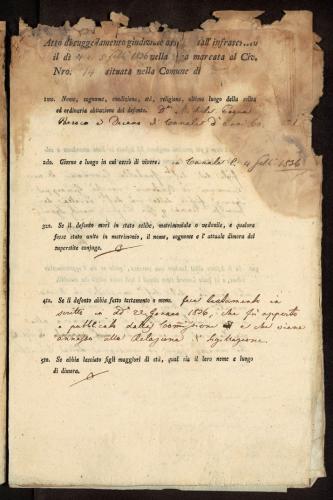 Atto di suggellamento giudiziale all' infrascritto
il dì 5 febb.° 1836 nella casa marcata al Civ.
Nro. 14 situata nella Comune di
1mo. Nome, cognome, condizione, età, religione, ultimo luogo della solita
ed ordinaria abitazione del defunto. D.
Parroco e Decano di Canale d'
2do. Giorno e luogo in cui cessò di vivere. a Canale li 4 feb.° 1836
3zo. Se il defunto morì in stato celibe, matrimoniale o vedovile, e qualora
fosse stato unito in matrimonio, il nome, cognome e l' attuale dimora del
superstite conjuge.
4to. Se il defunto abbia fatto testamento o meno. fece testamento in
scritto in dd.° 22 Gennaro 1836, che fu apperto
e pubblicato dalla Comissione e che viene
annesso alla Relazione Sigillazione.
5to. Se abbia lasciato figli maggiori di età, qual sia il loro nome e luogo
di dimora.